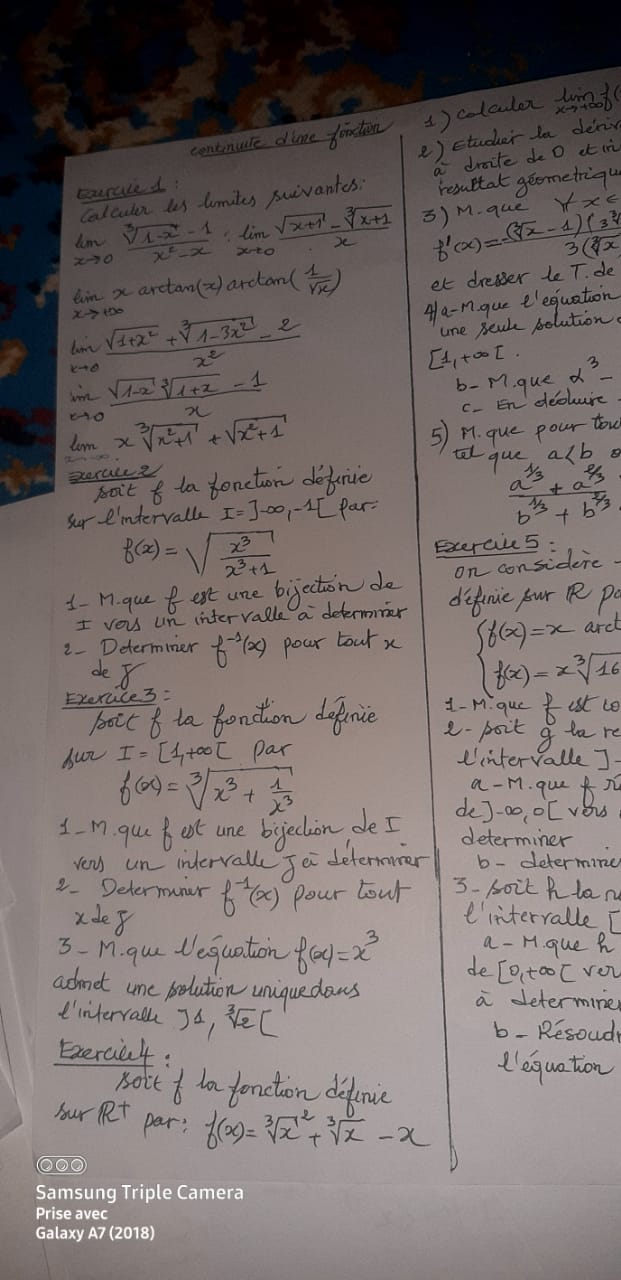 continuité d'une fonction
Exercice 1 :
Calculer les limites suivantes:
lim x→0 (∛(1-x) - 1)/(x² - x) ; lim x→0 (√(x+1) - ∛(x+1))/x
lim x→+∞ x arctan(x) arctan(1/√x)
lim x→0 (√(1+x²) + ∛(1-3x²) - 2)/x²
lim x→0 (√(1-x) ∛(1+x) - 1)/x
lim x ∛(x²+1) + √(x²+1)
Exercice 2
soit f la fonction définie
sur l'intervalle I = ]-∞, -1[ par:
f(x) = √(x³/(x³+1))
1- M.que f est une bijection de
I vers un intervalle à determiner
2- Determiner f⁻¹(x) pour tout x
de J
Exercice 3 :
soit f la fonction définie
sur I = [1, +∞[ par
f(x) = ∛(x³ + 1/x³)
1- M.que f est une bijection de I
vers un intervalle J à déterminer
2- Determiner f⁻¹(x) pour tout
x de J
3- M.que l'équation f(x) = x³
admet une solution unique dans
l'intervalle ]1, ∛2[
Exercice 4 :
soit f la fonction définie
sur ℝ+ par: f(x) = ∛x² + ∛x - x
1) calculer lim x→+∞ f(
2) Etudier la dériv
à droite de 0 et in
resultat géometriqu
3) M.que ∀x ∈
f'(x) = -(∛x - 1)(3∛
3(∛x
et dresser le T. de
4) a- M.que l'équation
une seule solution
[1, +∞[.
b- M.que α³ -
c- En déduire
5) M.que pour tou
tel que a<b
a^1/3 + a^2/3
b^1/3 + b^2/3
Exercice 5 :
On considère
définie sur ℝ pa
{ f(x) = x arct
f(x) = x∛16
1- M.que f est co
2- soit g la re
l'intervalle ]-
a- M.que f
de ]-∞, 0[ vers
determiner
b- determine
3- soit h la
l'intervalle [
a- M.que h
de [0, +∞[ ver
à determiner
b- Résoud
l'équation
Samsung Triple Camera
Prise avec
Galaxy A7 (2018)